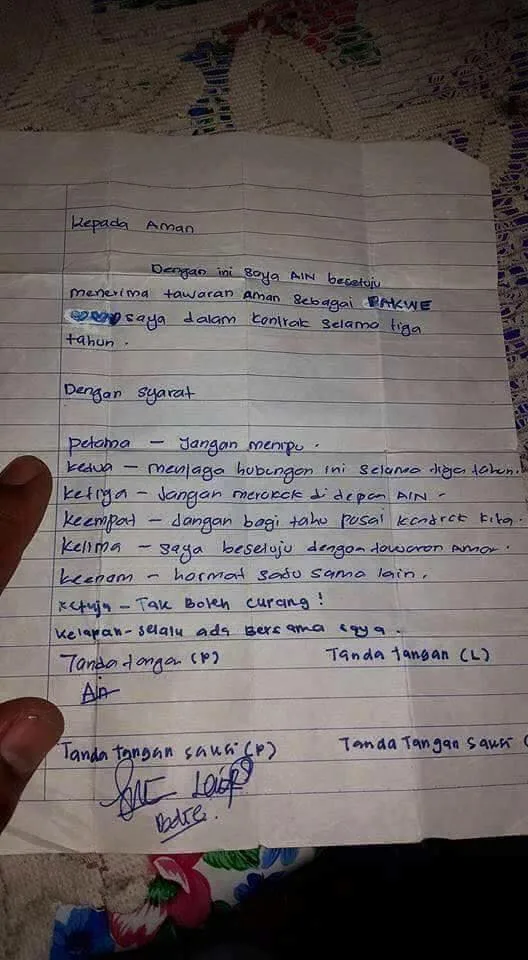 Kepada Aman
Dengan ini saya AIN besetuju
menerima tawaran aman sebagai PAKWE
saya dalam kontrak selama tiga
tahun.
Dengan syarat
petama - Jangan menipu.
kedua - menjaga hubungan ini selama tiga tahun.
ketiga - Jangan merokok di depan AIN.
keempat - Jangan bagi tahu pasai kontrek kita.
kelima - saya besetuju dengan tawaran Aman.
keenam - hormat satu sama lain.
ketuju - Tak Boleh curang!
kelapan - selalu ada Bersama saya.
Tanda tangan (P) Tanda tangan (L)
Ain
Tanda Tangan saksi (P) Tanda Tangan saksi (